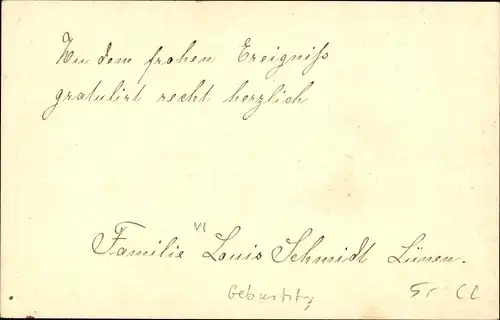 Zu dem frohen Ereigniß
gratulirt recht herzlich
Familie Louis Schmidt Lünen.